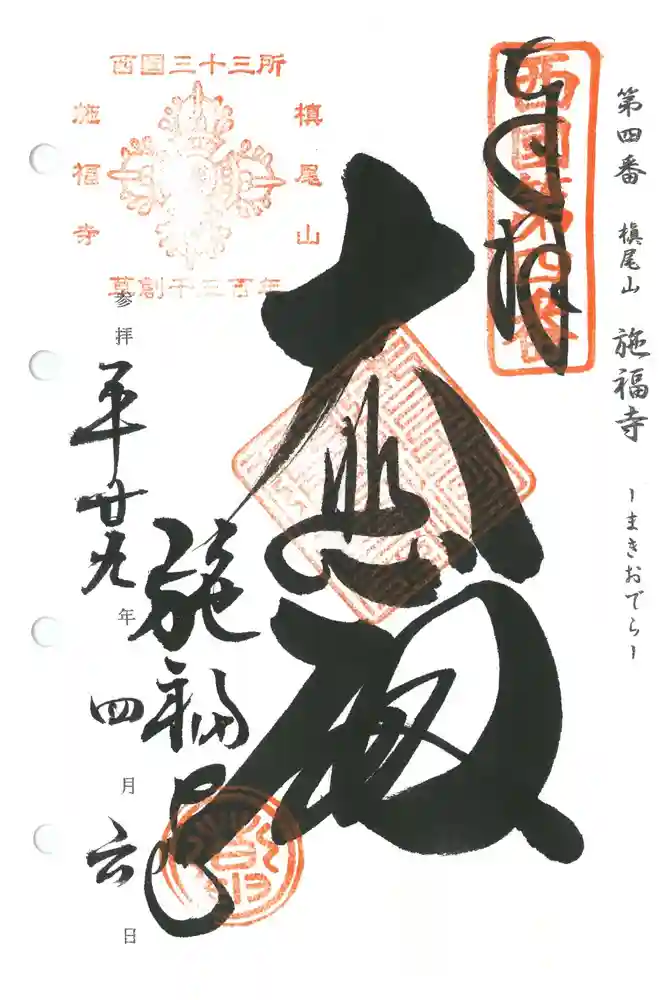 第四番 槇尾山 施福寺 ーまきおでらー
奉拝
西国第四番
大悲殿
西国三十三所
槇尾山
施福寺
草創千三百年
施福寺
参拝 平廿九年 四月六日